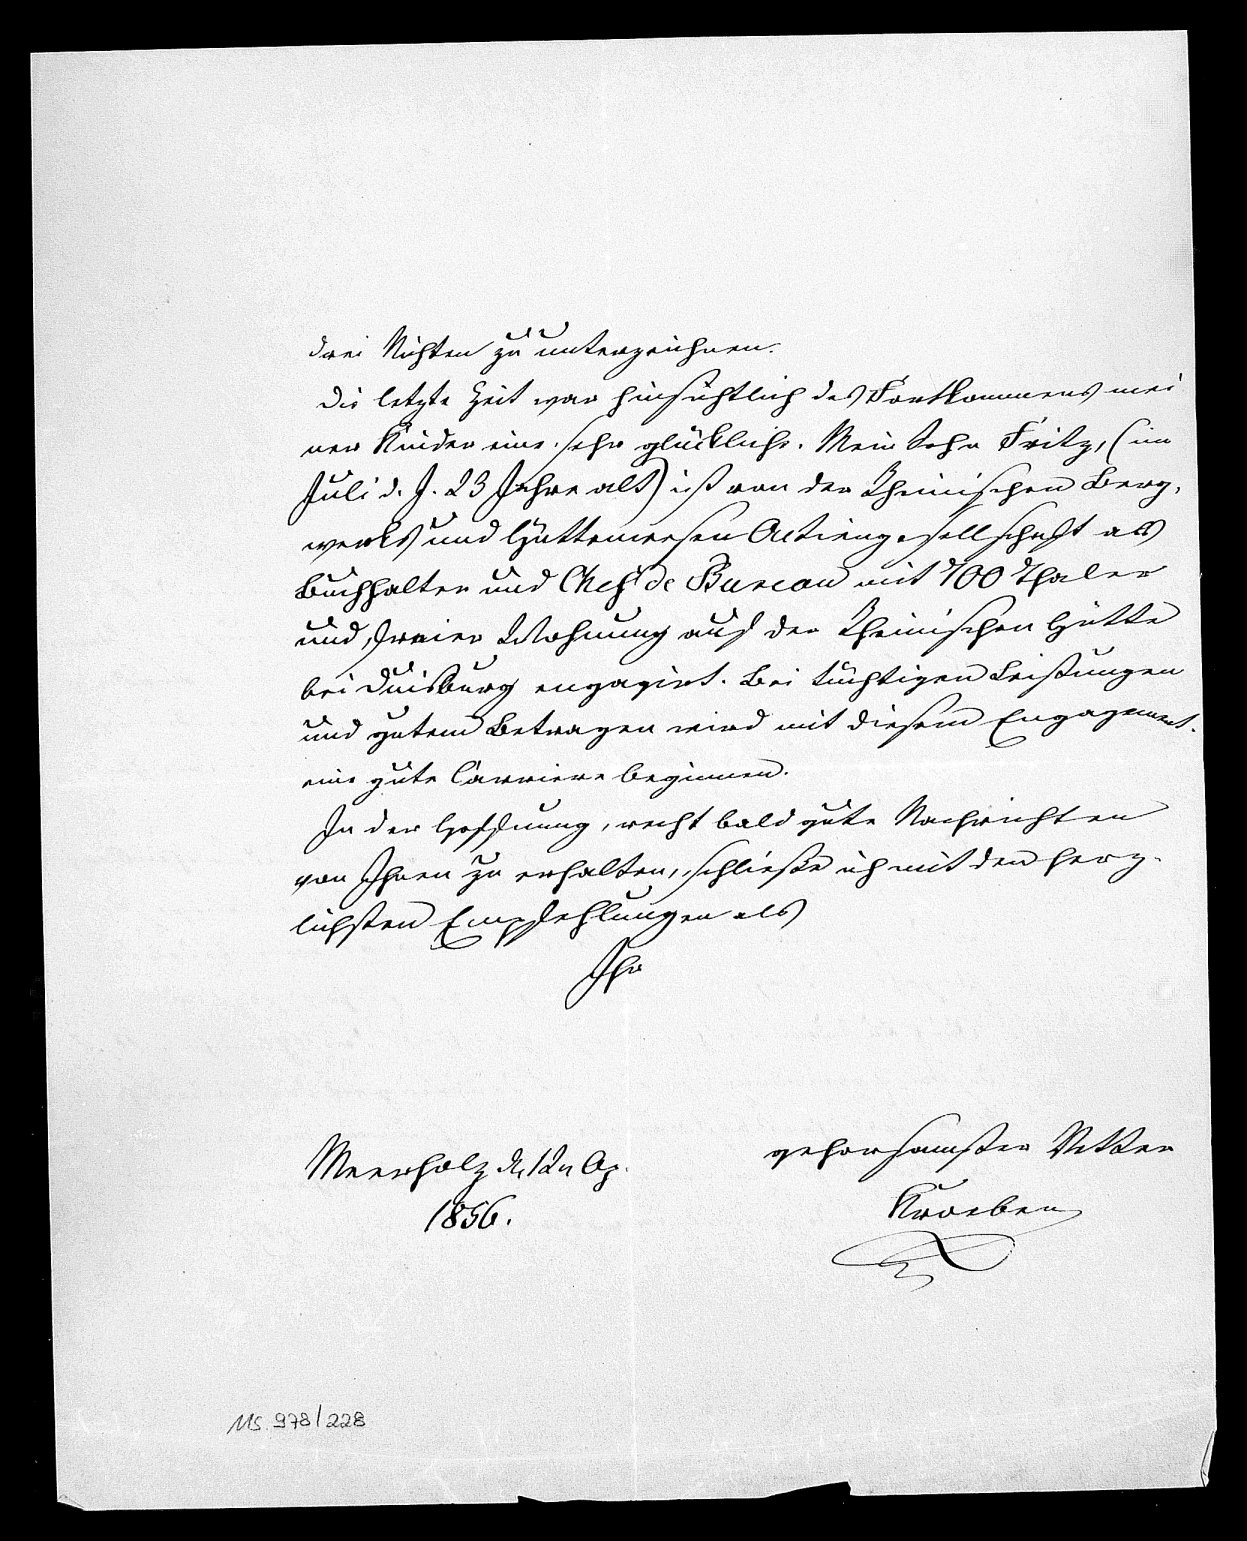 drei Nichten zu unterzeichnen.
Die letzte Zeit war hinsichtlich des Fortkommens mei
ner Kinder eine sehr glückliche. Mein Sohn Fritz, (im
Juli d. J. 23 Jahre alt) ist von der Rheinischen Berg-
werks und Hüttenwesen Actiengesellschaft als
Buchhalter und Chef de Bureau mit 700 Thaler
und freier Wohnung auf der Rheinischen Hütte
bei Duisburg engagirt. Bei tüchtigen Leistungen
und gutem Betragen wird mit diesem Engagement
eine gute Carriere beginnen.
In der Hoffnung, recht bald gute Nachrichten
von Ihnen zu erhalten, schließe ich mit den herz-
lichsten Empfehlungen als
Ihr
gehorsamster Vetter
Kroeber
Meerholz d. 12n Ap.
1856.
MS. 978/228